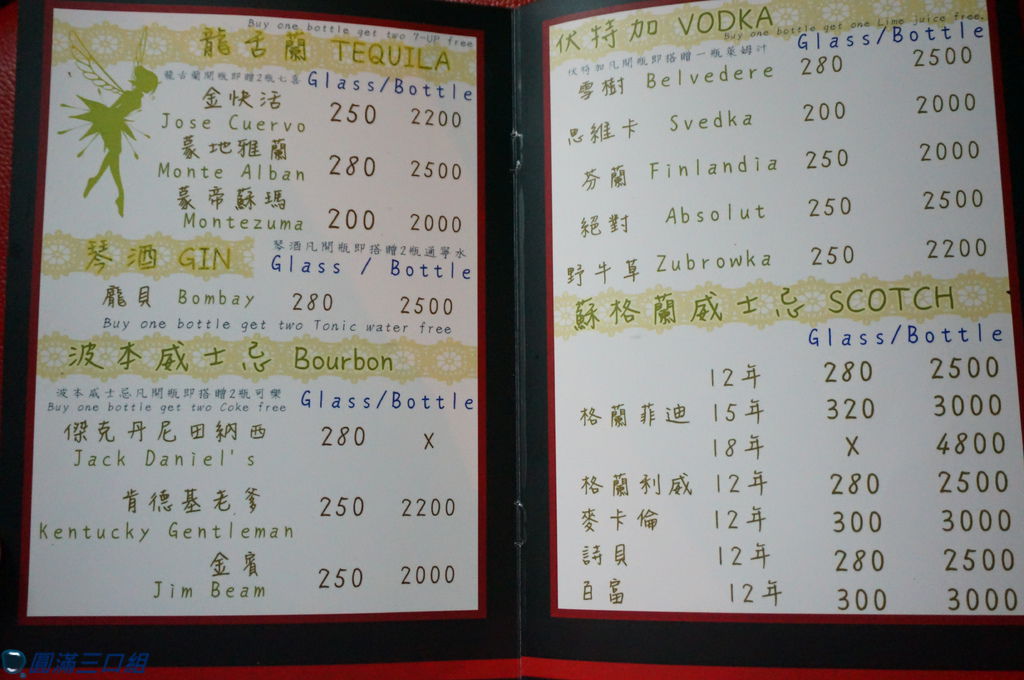 Buy one bottle get two 7-UP free
龍舌蘭 TEQUILA
龍舌蘭開瓶即贈2瓶七喜 Glass/Bottle
金快活
Jose Cuervo 250 2200
蒙地雅蘭
Monte Alban 280 2500
蒙帝蘇瑪
Montezuma 200 2000
琴酒 GIN
琴酒凡開瓶即搭贈2瓶通寧水
Glass / Bottle
龐貝 Bombay 280 2500
Buy one bottle get two Tonic water free
波本威士忌 Bourbon
波本威士忌凡開瓶即搭贈2瓶可樂
Buy one bottle get two Coke free
Glass/Bottle
傑克丹尼田納西 280 X
Jack Daniel's
肯德基老爹 250 2200
Kentucky Gentleman
金賓
Jim Beam 250 2000
伏特加 VODKA
Buy one bottle get one Lime juice free.
伏特加凡開瓶即搭贈一瓶萊姆汁
Glass/Bottle
雪樹 Belvedere 280 2500
思維卡 Svedka 200 2000
芬蘭 Finlandia 250 2000
絕對 Absolut 250 2500
野牛草 Zubrowka 250 2200
蘇格蘭威士忌 SCOTCH
Glass/Bottle
12年 280 2500
格蘭菲迪 15年 320 3000
18年 X 4800
格蘭利威 12年 280 2500
麥卡倫 12年 300 3000
詩貝 12年 280 2500
百富 12年 300 3000
圓滿三口組